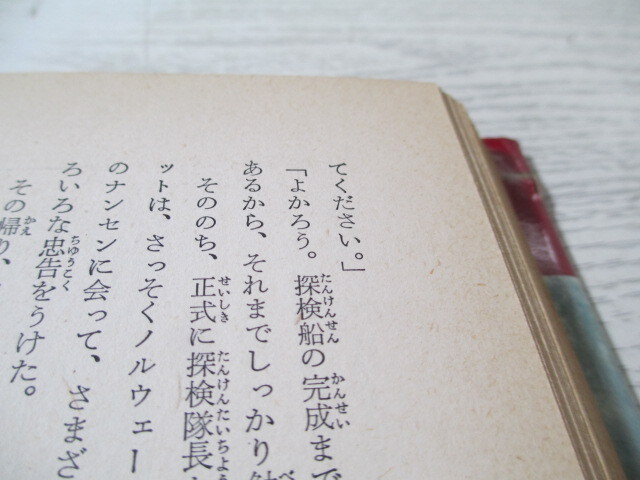 てください。」
「よかろう。探検船の完成まで
あるから、それまでしっかり
そののち、正式に探検隊長
ットは、さっそくノルウェー
のナンセンに会って、さまざ
ろいろな忠告をうけた。
その帰り、